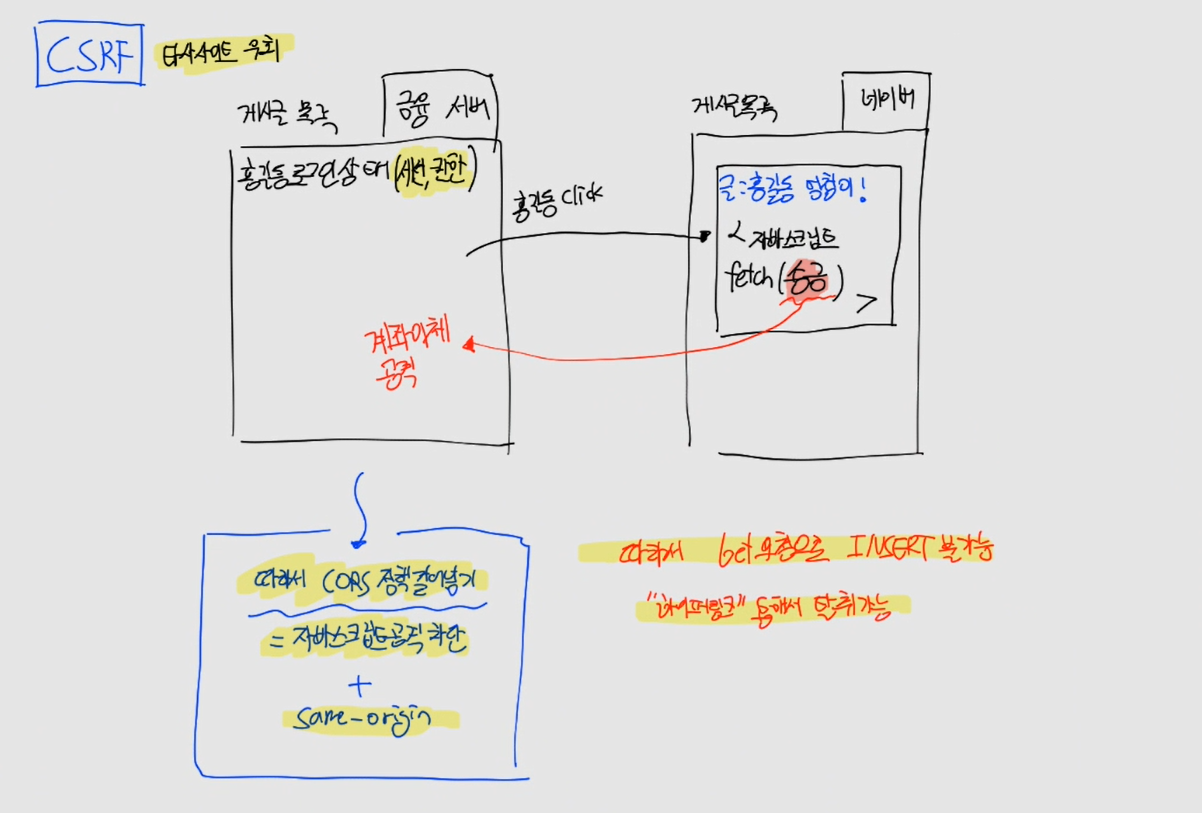 CSRF 타사사이트 우회
게시글 목록
금융 서버
홍길동 로그인상태 (세션, 권한)
홍길동 click
계좌이체
공격
게시글목록
네이버
글:홍길동 멍청이!
< 자바스크립트
fetch(송금)
>
따라서 CORS 정책걸어놓기
= 자바스크립트공격 차단
+
same-origin
따라서 get요청으로 INSERT 불가능
"하이퍼링크" 통해서 탈취가능